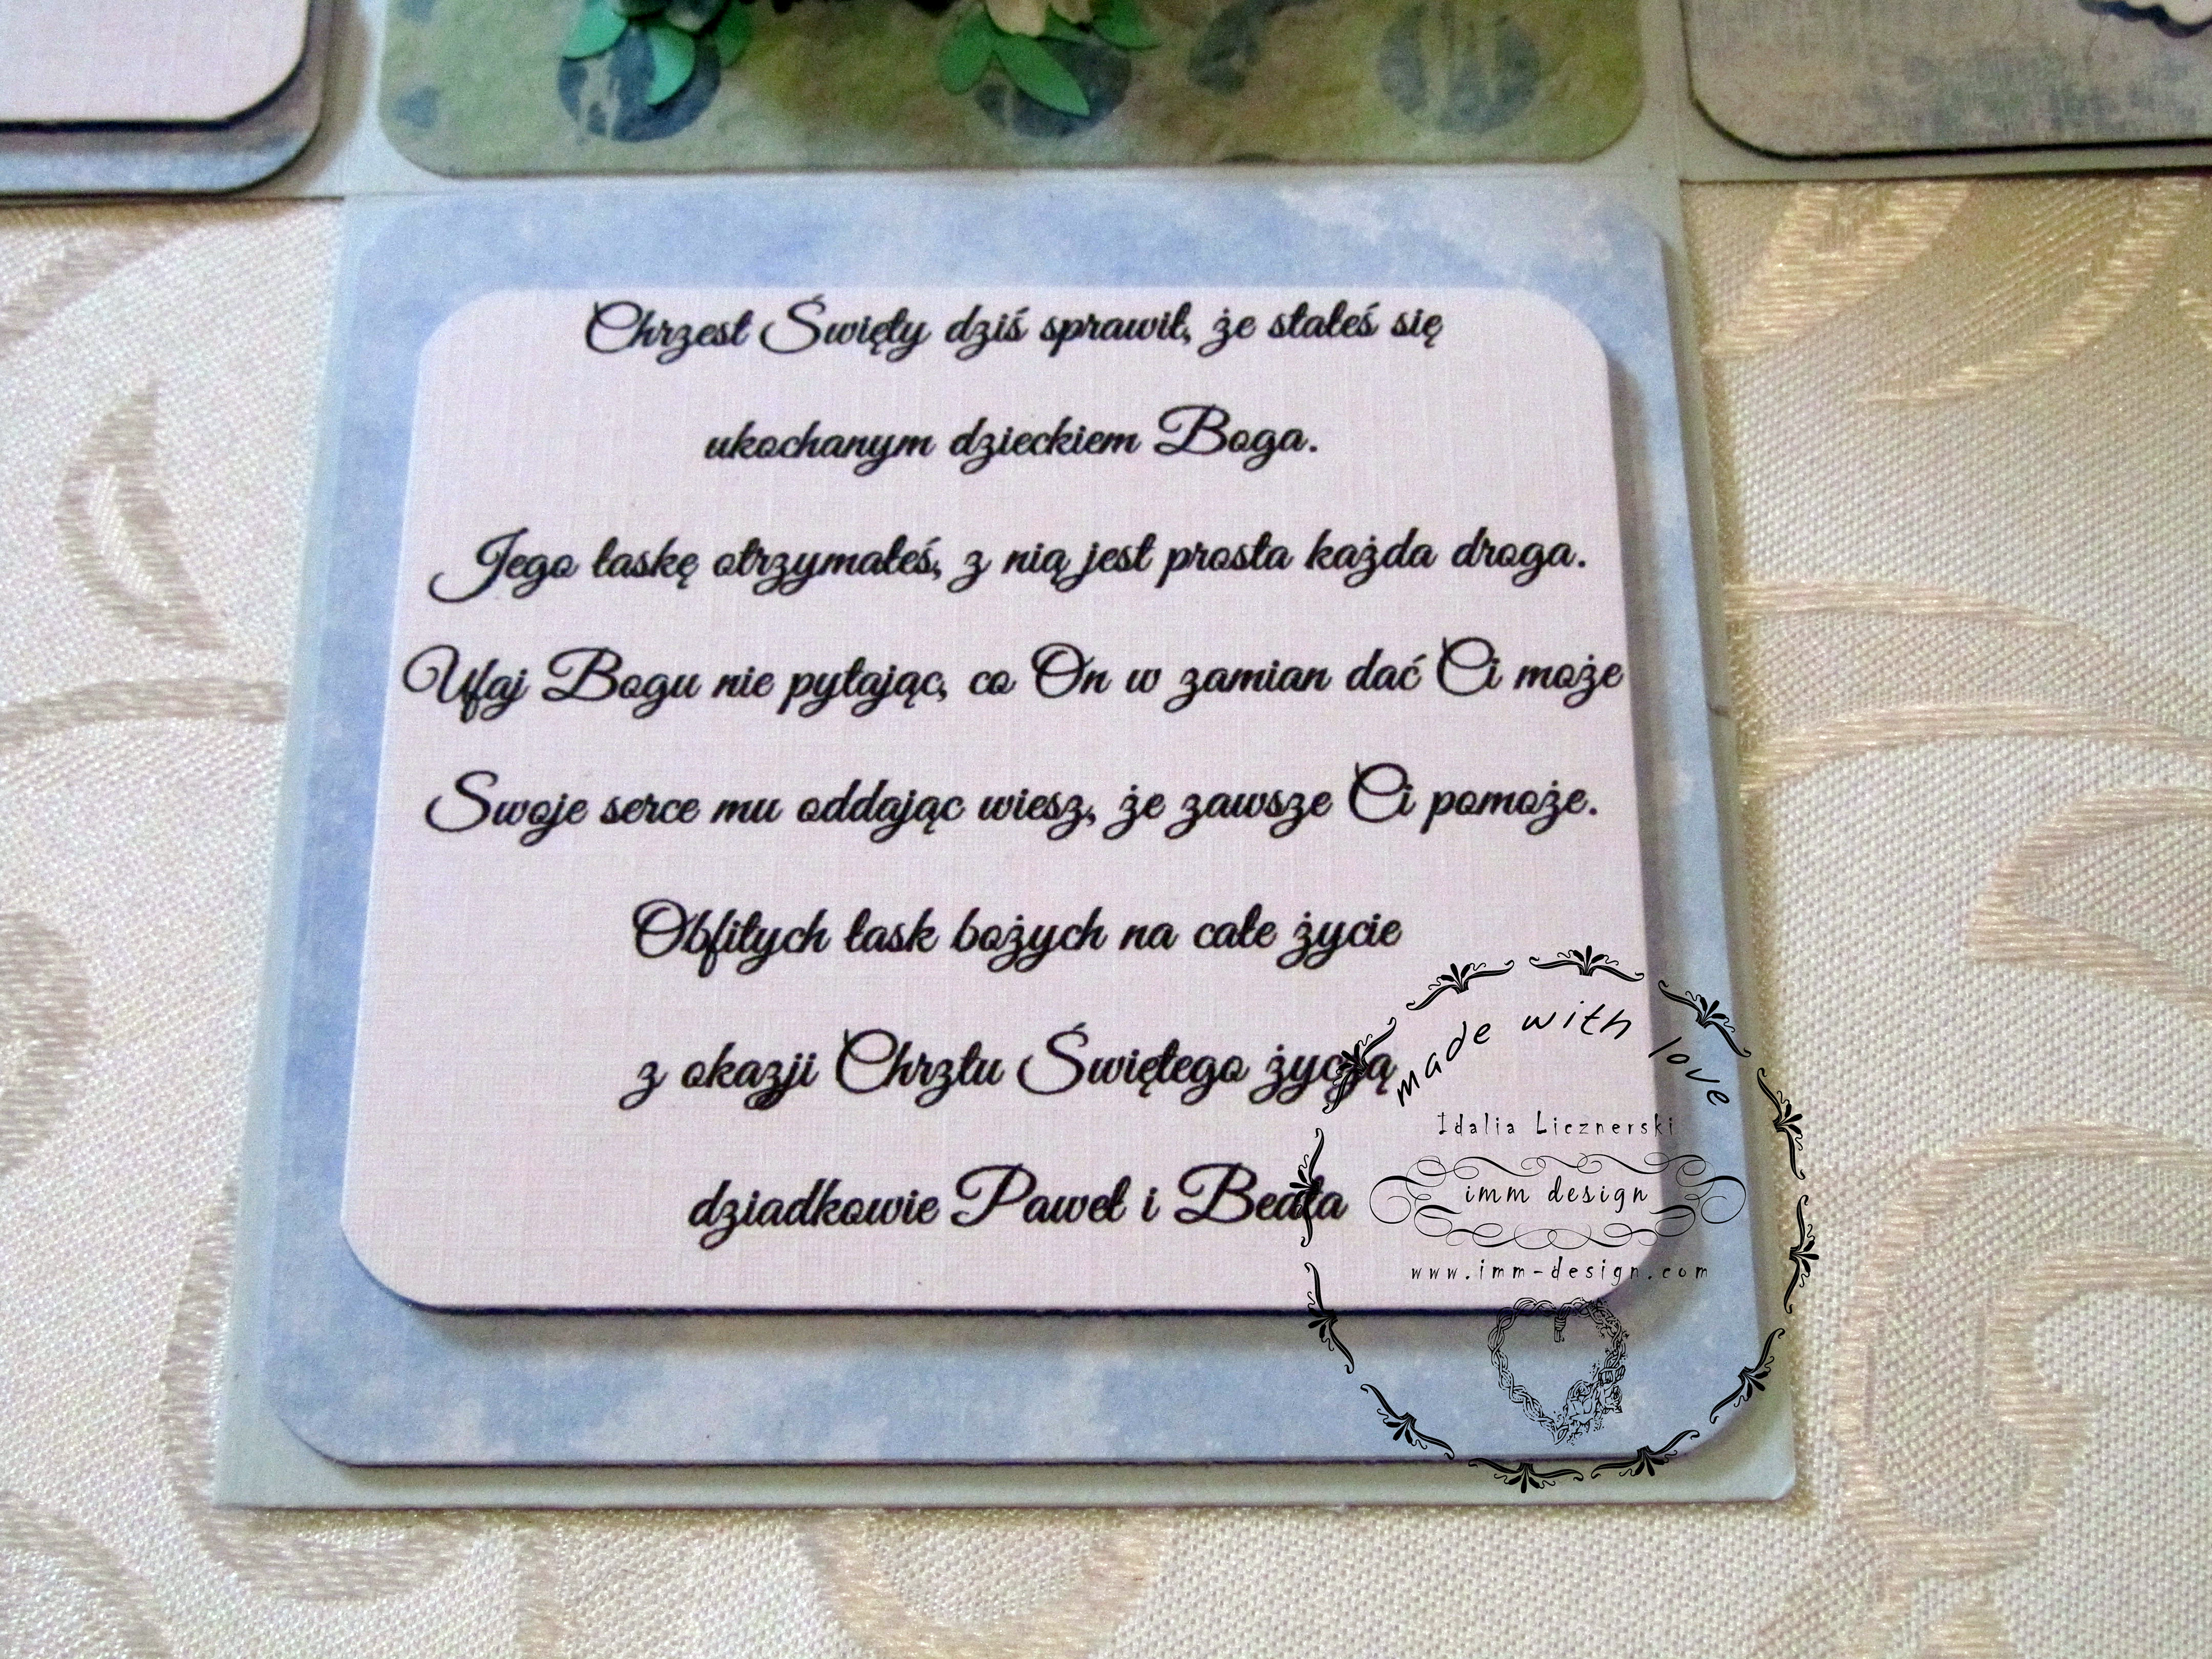 Chrzest Święty dziś sprawił, że stałeś się
ukochanym dzieckiem Boga.
Jego łaskę otrzymałeś, z nią jest prosta każda droga.
Ufaj Bogu nie pytając, co On w zamian dać Ci może
Swoje serce mu oddając wiesz, że zawsze Ci pomoże.
Obfitych łask bożych na całe życie
z okazji Chrztu Świętego życzą
dziadkowie Paweł i Beata
made with love
Idalia Licznerski
imm design
www.imm-design.com